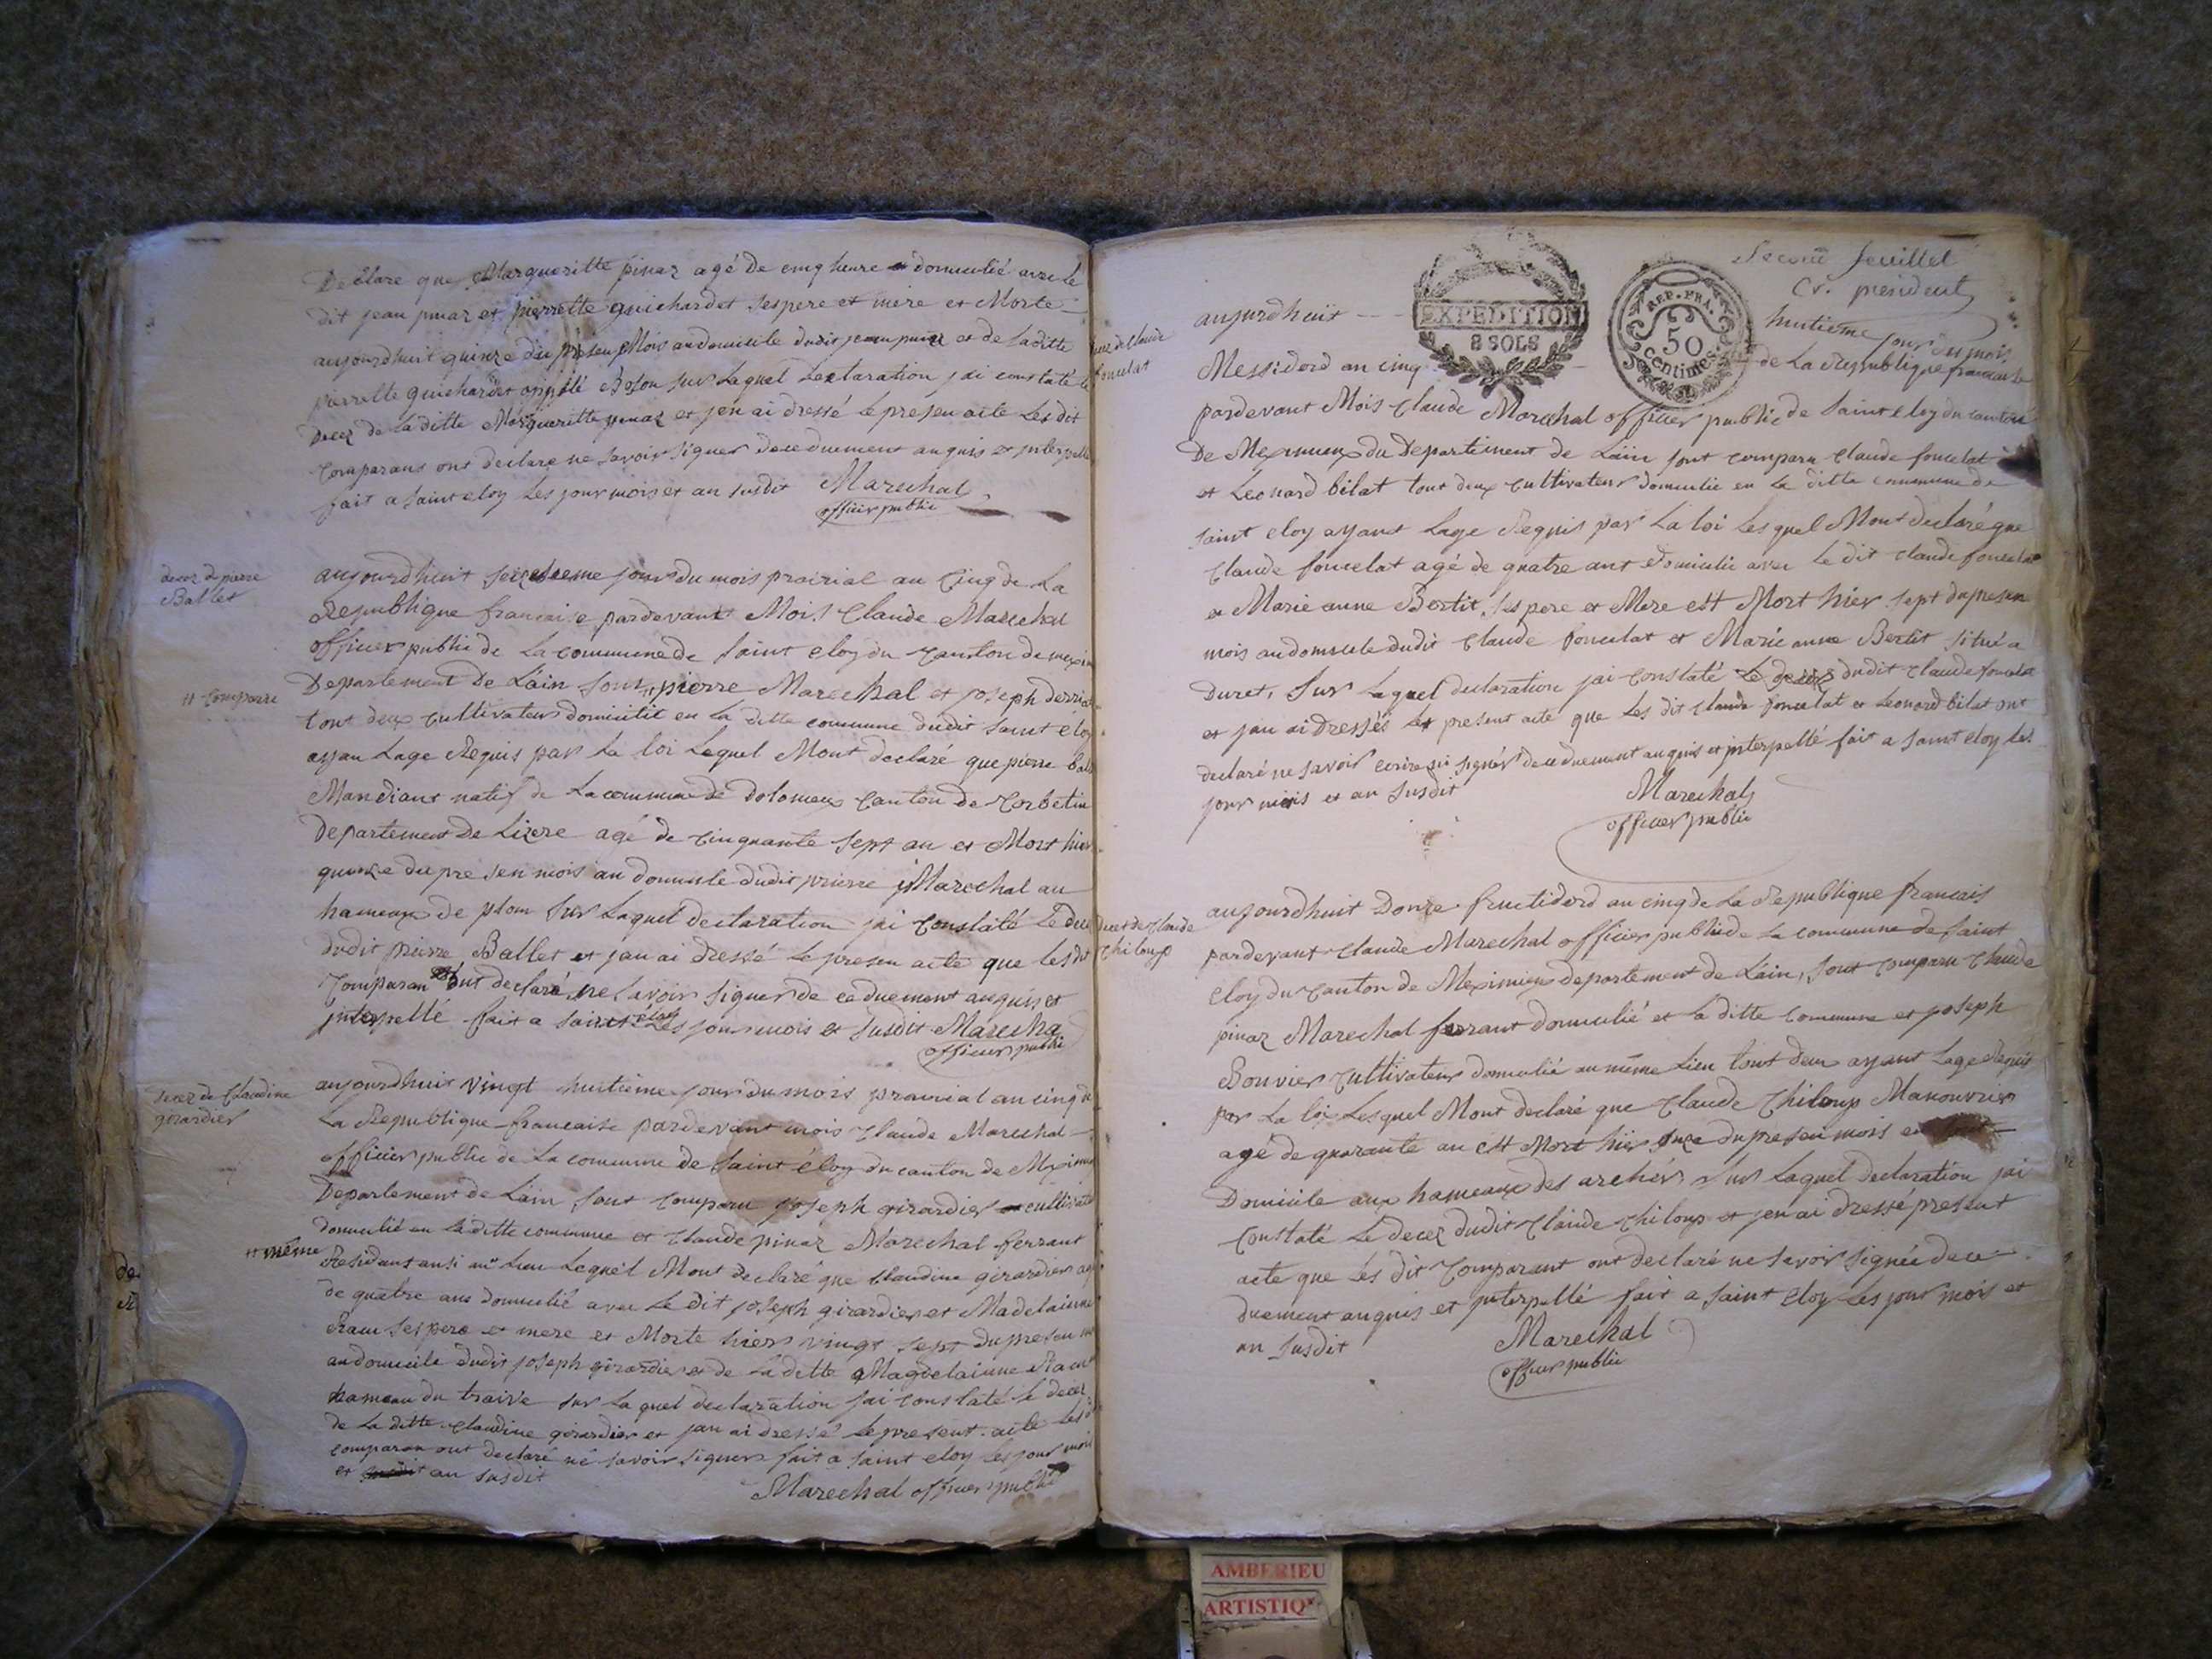 Declare que Margueritte pinaz agé De cinq heure domicilié avec le
dit jean pinaz et pierrette guichardet ses pere et mere et Morte
aujourdhuit quinze du presen Mois au domicile dudit jean pinaz et de laditte
pierrette guichardet appellé Boson sur Laquel Declaration jai constaté le
Decez de La ditte Margueritte pinaz et jen ai dressé le presen acte Les dit
Comparans ont declare ne savoir signer de ce duement anquis et interpellé
fait a saint eloy Les jour mois et an susdit Marechal
officier public
decez de pierre
Ballet
aujourdhuit seizieme jour du mois prairial an Cinq de La
Republique francaise pardevant Mois Claude Marechal
officier public de La commune de saint eloy du Canton de
Departement De Lain sont pierre Marechal et joseph
# Comparu
tout deux cultivateur domicilié en La ditte commune dudit saint eloy
ayan Lage Requis par La loi Lequel Mont declaré que pierre
Mandiant natif de La commune de dolomeux Canton de Corbetin
Departement De Lizere agé de Cinquante sept an et Mort hier
quinze du presen mois au domicile dudit pierre Marechal au
hameaux de plom sur Laquel declaration jai Constaté Le
dudit pierre Ballet et jan ai dressé le presen acte que les dit
Comparan ont declaré ne savoir signer de ce duement anquis et
interpellé fait a saint eloy Les jour mois et susdit Marecha
officier public
decez de Claudine
girardier
aujourdhuit vingt huitieme jour du mois prairial an cinq de
La Republique francaise pardevant mois Claude Marechal
officier public de La commune de saint éloy du canton de
Departement de Lain sont comparu joseph girardier
domicilié en La ditte commune et Claude pinaz Marechal ferrant
# même
Residant ausi au Lieu Lequel Mont declaré que Claudine girardier
de quatre ans domicilié avec Le dit joseph girardier et Madelainne
Ram ses pere et mere et Morte hier vingt sept du presen
au domicile dudit joseph girardier et de La ditte Magdelainne Ram
hameau du traive sur La quel declaration jai constaté le decez
de La ditte Claudine girardier et jan ai dressé le present acte Les
comparan ont declaré ne savoir signer fait a saint eloy les jour mois
et an susdit
Marechal officier public
Second feuillet
president
EXPEDITION
8 SOLS
REP. FRA.
50
centimes.
aujourdhuit huitieme jour du mois
Messidord an cinq de La Republique francaise
decez de Claude
foncelat
pardevant Mois Claude Marechal officier public de saint eloy du canton
De Meximieux du Departement de Lain sont comparu Claude foncelat
et Leonard bilat tout deux cultivateur domicilie en La ditte commune de
saint eloy ayant Lage Requis par La loi Les quel Mont declaré que
Claude foncelat agé de quatre ant domicilie avec Le dit Claude foncelat
et Marie anne Bertit ses pere et Mere est Mort hier sept du presen
mois au domicile dudit Claude foncelat et Marie anne Bertit situé a
Duret, sur Laquel declaration jai constaté Le decez dudit Claude foncelat
et jan ai dressés le present acte que Les dit Claude foncelat et Leonard bilat ont
declaré ne savoir ecrire ni signér de ce duement anquis et interpellé fait a saint eloy les
jour mois et an susdit
Marechal
officier public
decet de Claude
Chiloup
aujourdhuit Donze fructidord an cinq de La Republique francais
pardevant Claude Marechal officier public de La commune de saint
eloy du Canton de Meximieux departement de Lain, sont comparu Claude
pinaz Marechal ferrant domicilié et La ditte commune et joseph
Bouvier Cultivateur domicilié au même Lieu tout deux ayant Lage Requis
par La loi Les quel Mont declaré que Claude Chiloup Manouvrier
agé de quarante an est Mort hier onze du presen mois en
Domicile aux hameaux des archér sur Laquel declaration jai
Constaté Le decez dudit Claude Chiloup et jen ai dressé present
acte que Les dit Comparant ont declaré ne savoir signée de ce
duement anquis et interpellé fait a saint eloy Les jour mois et
an susdit
Marechal
officier public
AMBERIEU
ARTISTIQ